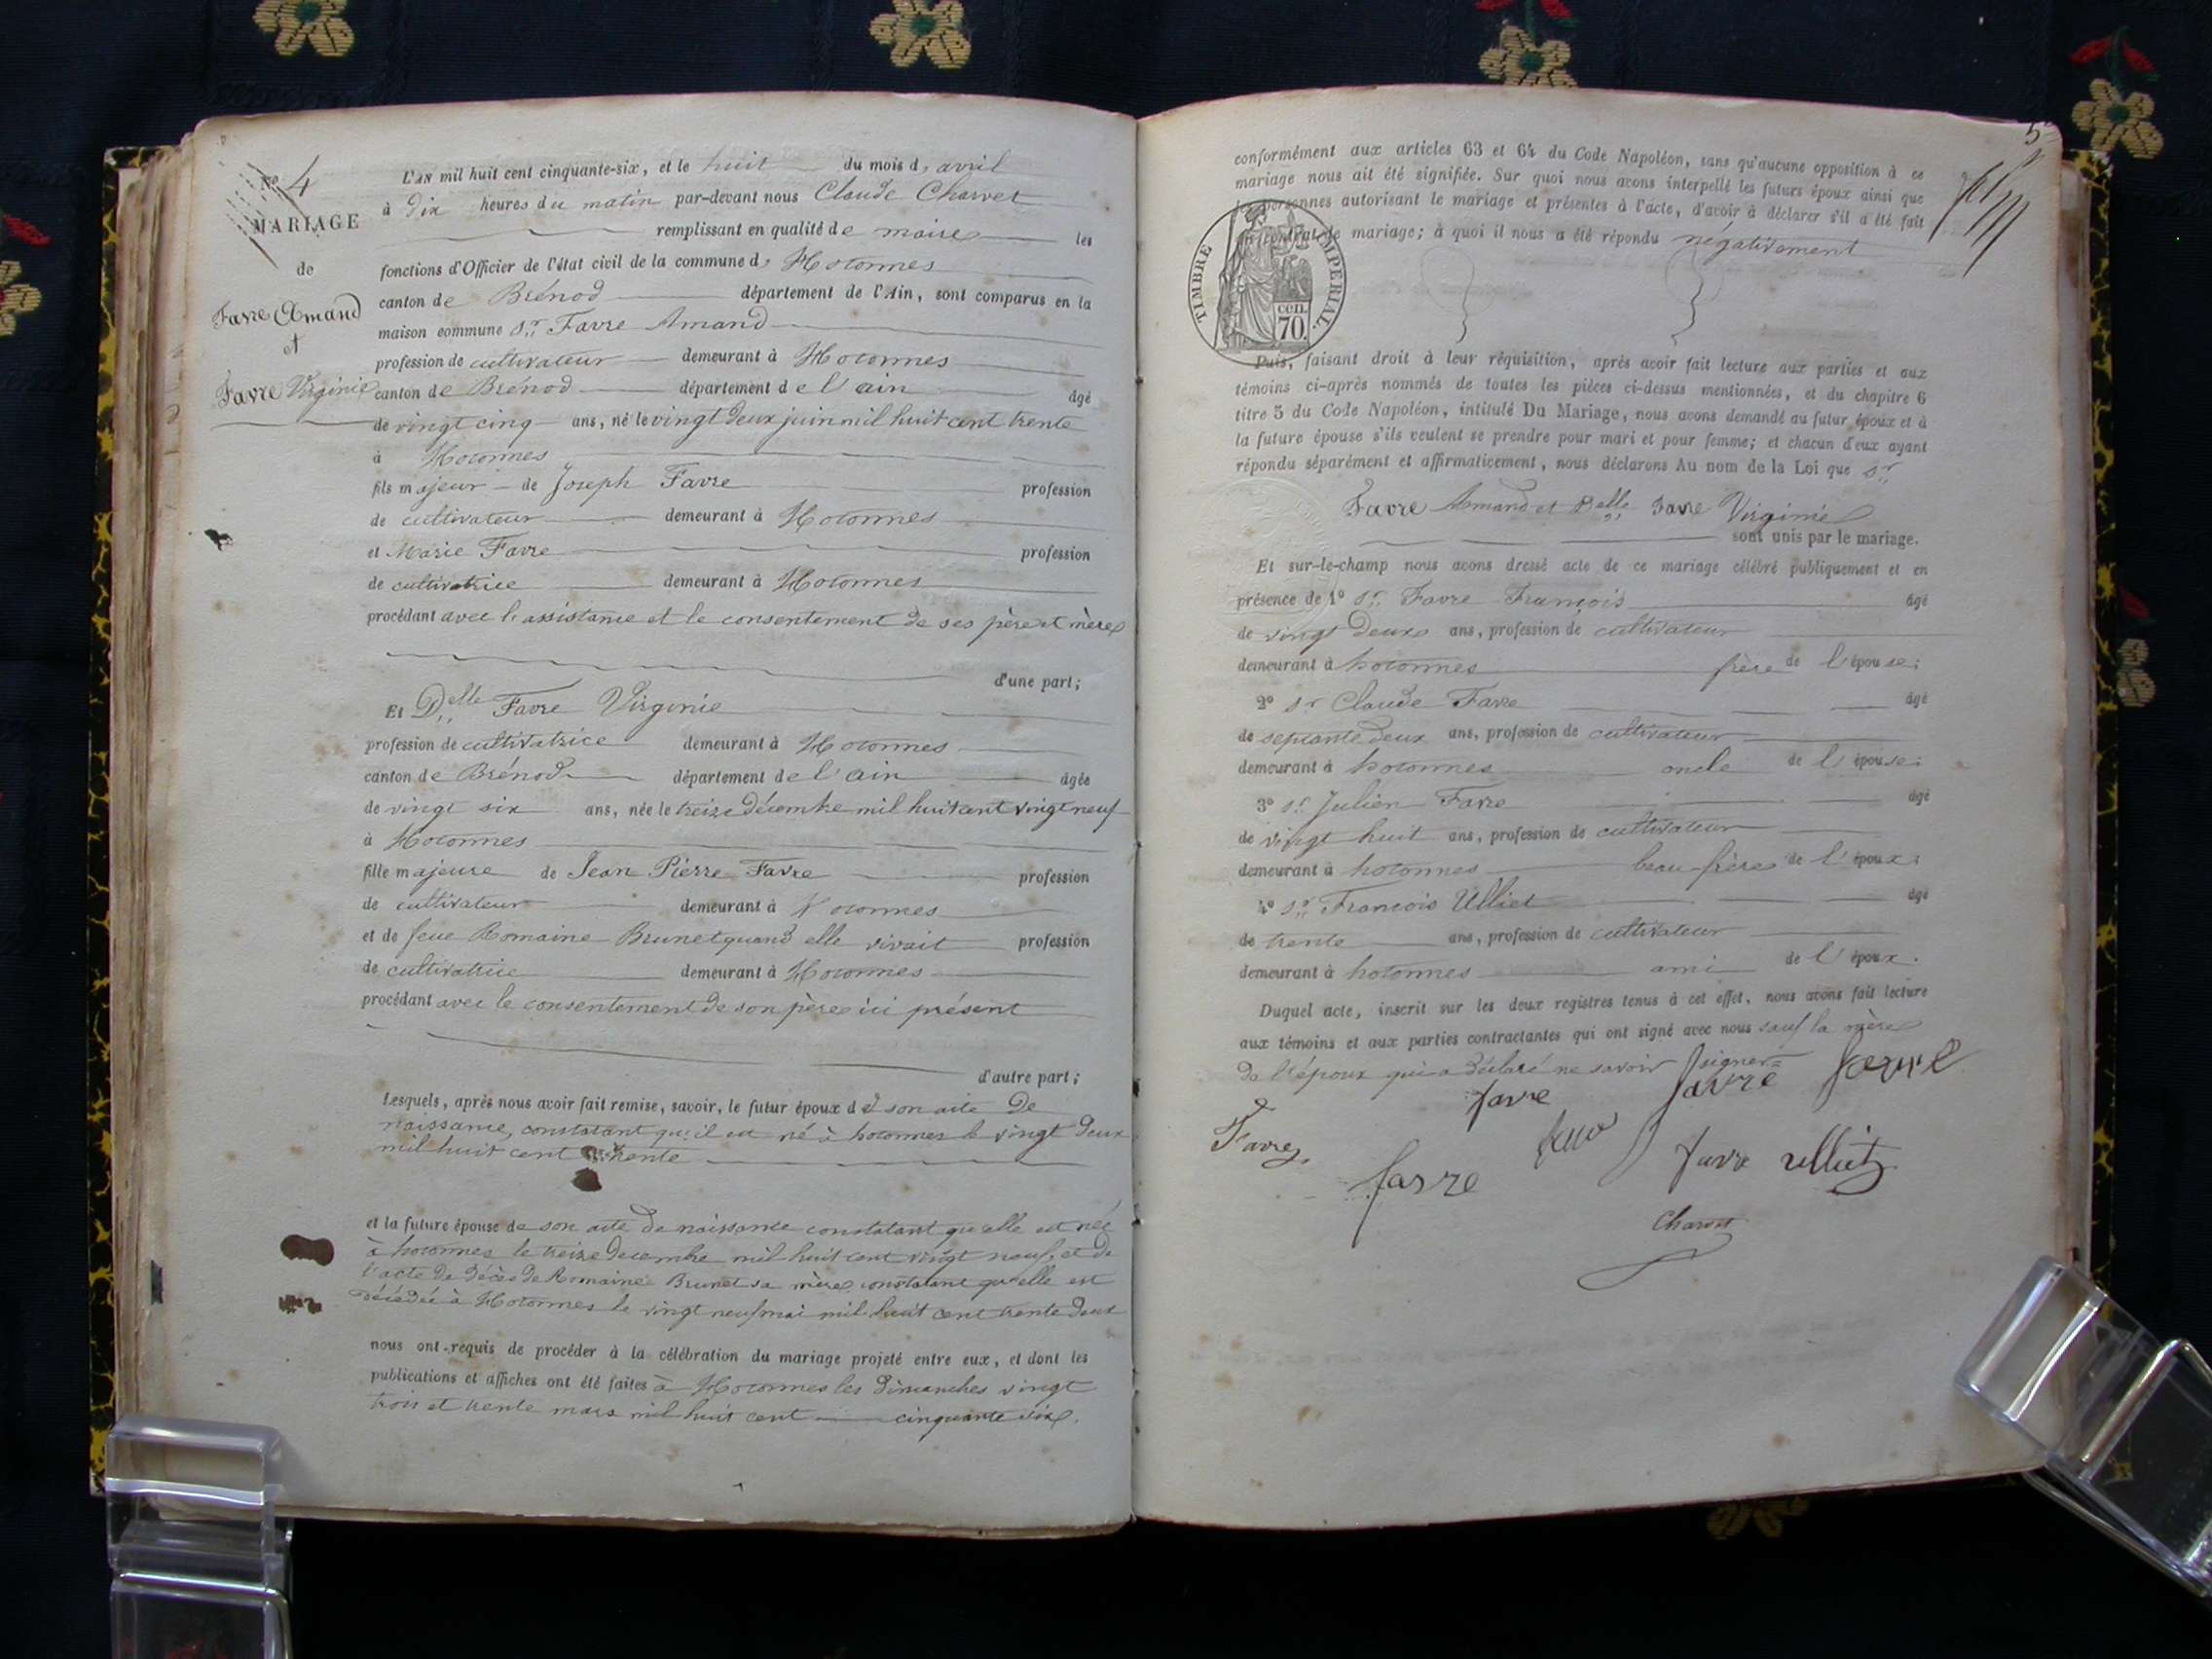 No 4
MARIAGE
de
Favre Amand
et
Favre Virginie
L'AN mil huit cent cinquante-six, et le huit du mois d' avril
à Dix heures du matin par-devant nous Claude Charvet
remplissant en qualité de maire les
fonctions d'Officier de l'état civil de la commune d' Hotonnes
canton de Brénod département de l'Ain, sont comparus en la
maison commune Sr Favre Amand
profession de cultivateur demeurant à Hotonnes
canton de Brénod département de l'ain âgé
de vingt cinq ans, né le vingt deux juin mil huit cent trente
à Hotonnes
fils majeur de Joseph Favre profession
de cultivateur demeurant à Hotonnes
et Marie Favre profession
de cultivatrice demeurant à Hotonnes
procédant avec l'assistance et le consentement de ses père et mère
d'une part;
Et Delle Favre Virginie
profession de cultivatrice demeurant à Hotonnes
canton de Brénod département de l'ain âgée
de vingt six ans, née le treize décembre mil huit cent vingt neuf
à Hotonnes
fille majeure de Jean Pierre Favre profession
de cultivateur demeurant à Hotonnes
et de feue Romaine Brunet quand elle vivait profession
de cultivatrice demeurant à Hotonnes
procédant avec le consentement de son père ici présent
d'autre part;
Lesquels, après nous avoir fait remise, savoir, le futur époux de son acte De
naissance, constatant qu'il est né à hotonnes le vingt deux
mil huit cent trente
et la future épouse de son acte de naissance constatant qu'elle est née
à hotonnes le treize decembre mil huit cent vingt neuf, et de
l'acte de décès de Romaine Brunet sa mère constatant qu'elle est
décédée à Hotonnes le vingt neuf mai mil huit cent trente deux
nous ont requis de procéder à la célébration du mariage projeté entre eux, et dont les
publications et affiches ont été faites à Hotonnes les dimanches vingt
trois et trente mars mil huit cent cinquante six.
5
conformément aux articles 63 et 64 du Code Napoléon, sans qu'aucune opposition à ce
mariage nous ait été signifiée. Sur quoi nous avons interpellé les futurs époux ainsi que
les personnes autorisant le mariage et présentes à l'acte, d'avoir à déclarer s'il a été fait
un contrat de mariage; à quoi il nous a été répondu négativement
TIMBRE IMPERIAL.
cen.
70.
Puis, faisant droit à leur réquisition, après avoir fait lecture aux parties et aux
témoins ci-après nommés de toutes les pièces ci-dessus mentionnées, et du chapitre 6
titre 5 du Code Napoléon, intitulé Du Mariage, nous avons demandé au futur époux et à
la future épouse s'ils veulent se prendre pour mari et pour femme; et chacun d'eux ayant
répondu séparément et affirmativement, nous déclarons Au nom de la Loi que Sr
Favre Amand et Delle Favre Virginie
sont unis par le mariage.
Et sur-le-champ nous avons dressé acte de ce mariage célébré publiquement et en
présence de 1º Sr Favre François âgé
de vingt deux ans, profession de cultivateur
demeurant à hotonnes frère de l'épouse;
2º Sr Claude Favre âgé
de septante deux ans, profession de cultivateur
demeurant à hotonnes oncle de l'épouse;
3º Sr Julien Favre âgé
de vingt huit ans, profession de cultivateur
demeurant à hotonnes beau-frère de l'époux;
4º Sr François Ulliet âgé
de trente ans, profession de cultivateur
demeurant à hotonnes ami de l'époux.
Duquel acte, inscrit sur les deux registres tenus à cet effet, nous avons fait lecture
aux témoins et aux parties contractantes qui ont signé avec nous sauf la mère
de l'époux qui a déclaré ne savoir signer=
favre favre favre
Favre
favre favre ulliet
Charvet